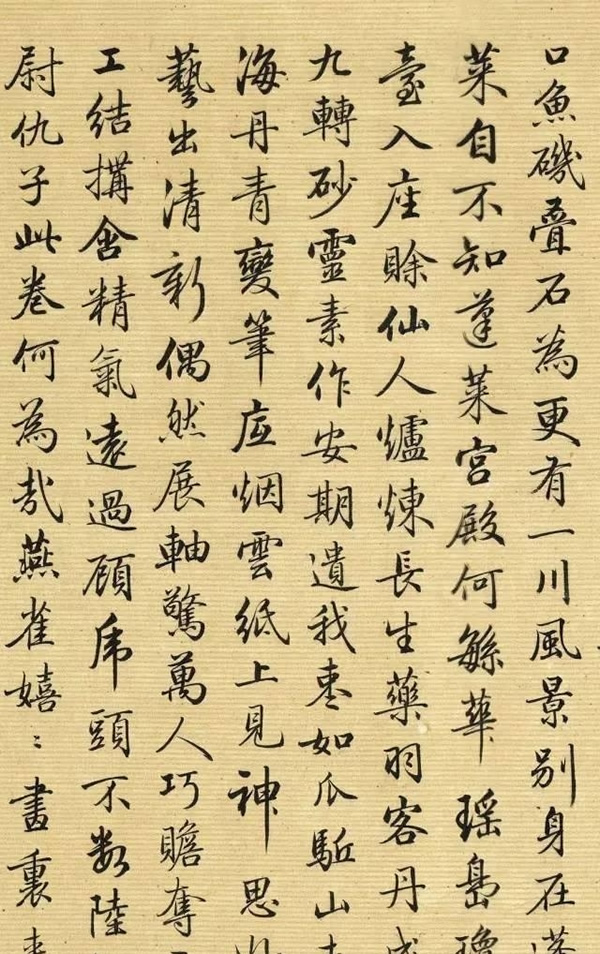 口魚磯疊石為更有一川風景别身在蓬
萊自不知蓬萊宮殿何緐華瑶島瓊
臺入座賖仙人爐煉長生藥羽客丹成
九轉砂靈素作安期遺我棗如瓜駈山走
海丹青變筆底烟雲紙上見神思
藝出清新偶然展軸驚萬人巧贍奪
工結搆含精氣遠過顧虎頭不數陸
尉仇子此卷何為哉燕雀嬉〻畫裏